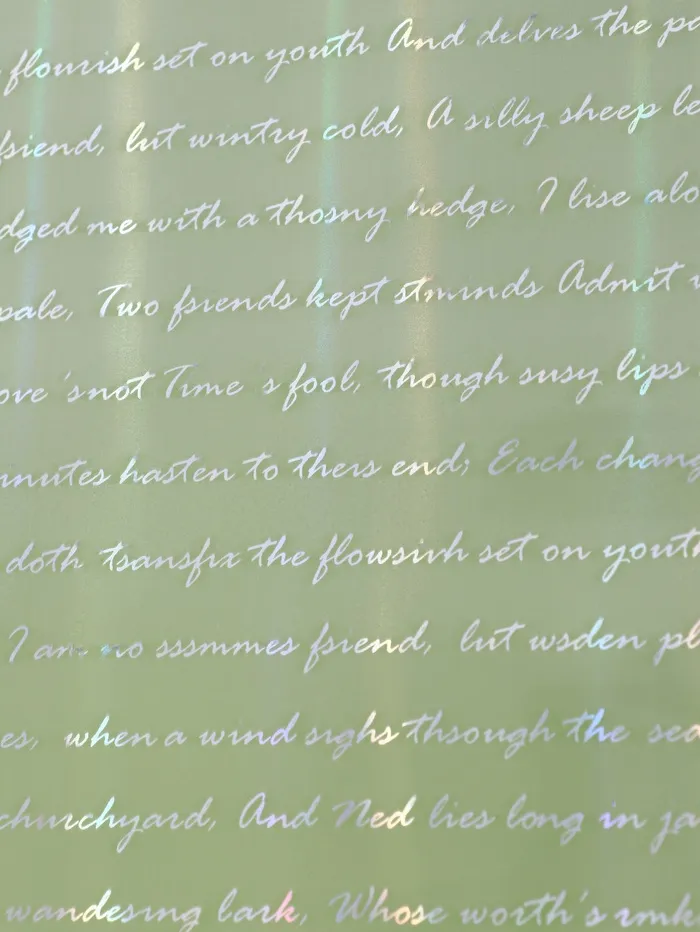 flourish set on youth And delves the pa
fsiend, lut wintry cold, A silly sheep le
dged me with a thosny hedge, I lise alo
pale, Two fsiends kept stminds Admit
ove 'snot Time s fool, though susy lips
inutes hasten to thers end; Each chang
doth tsansfix the flowsivh set on youth
I am no sssmmes fsiend, lut wsden pl
es, when a wind sighs thsough the sea
churchyard, And Ned lies long in ja
wandesing lark, Whose worth's